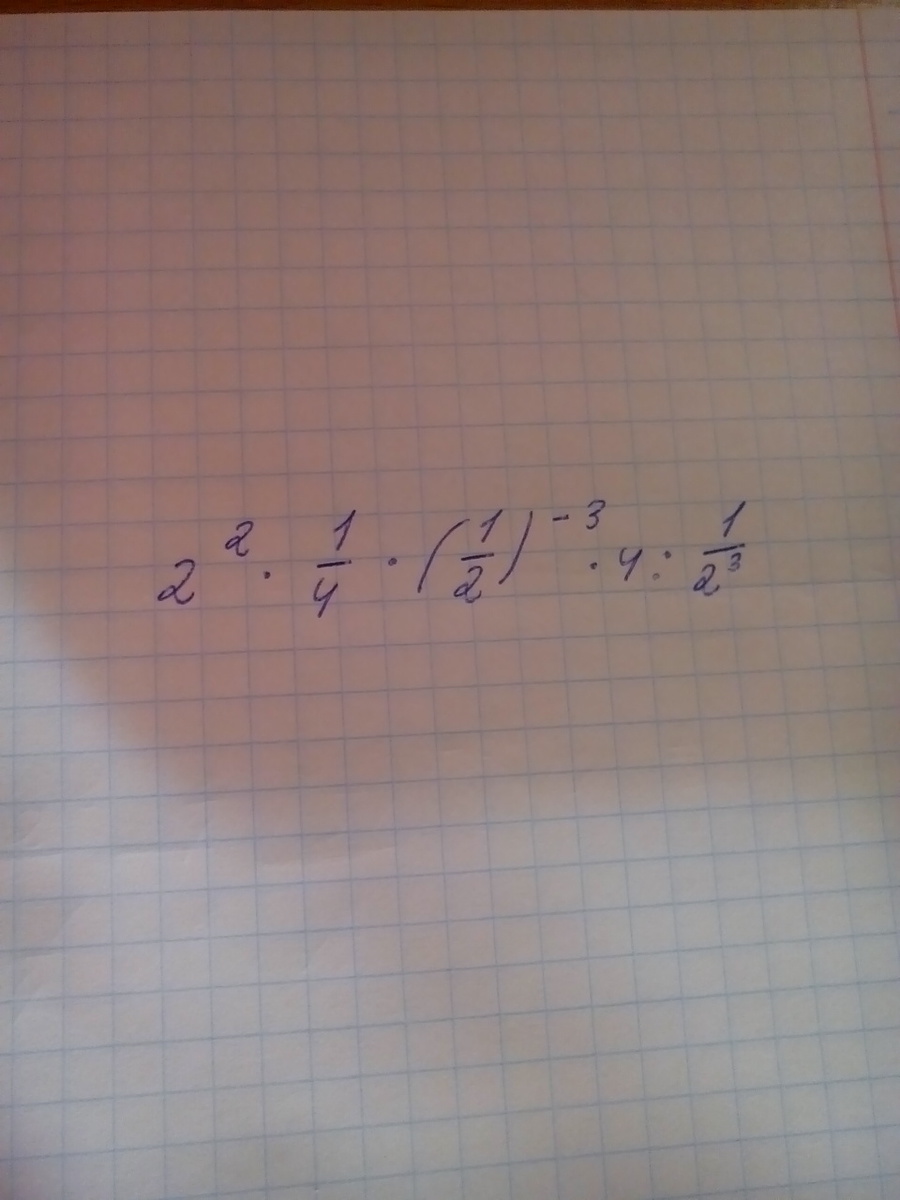 2² · 1/4 · (1/2)⁻³ · 4 : 1/2³